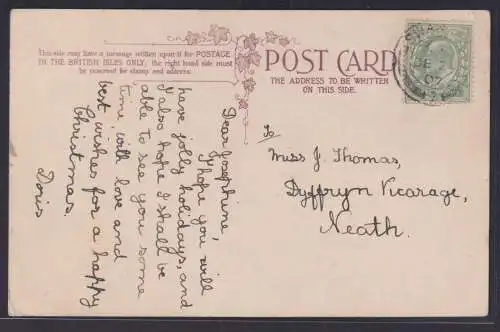 This side may have a message written upon it for POSTAGE
IN THE BRITISH ISLES ONLY, the right hand side must
be reserved for stamp and address.
POST CARD
THE ADDRESS TO BE WRITTEN
ON THIS SIDE.
Dear Josephine,
I hope you will
have jolly holidays, and
I also hope I shall be
able to see you some
time, with love and
best wishes for a happy
Christmas.
Doris
To
Miss J. Thomas,
Dyffryn Vicarage,
Neath.